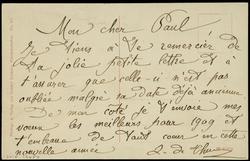 Mon cher Paul
Je viens à te remercier de
ta jolie petite lettre et à
t'assurer que celle-ci n'est pas
oubliée malgré sa date déjà ancienne
De mon coté je t'envoie mes
voeux les meilleurs pour 1909 et
t'embrasse de tout coeur en cette
nouvelle année